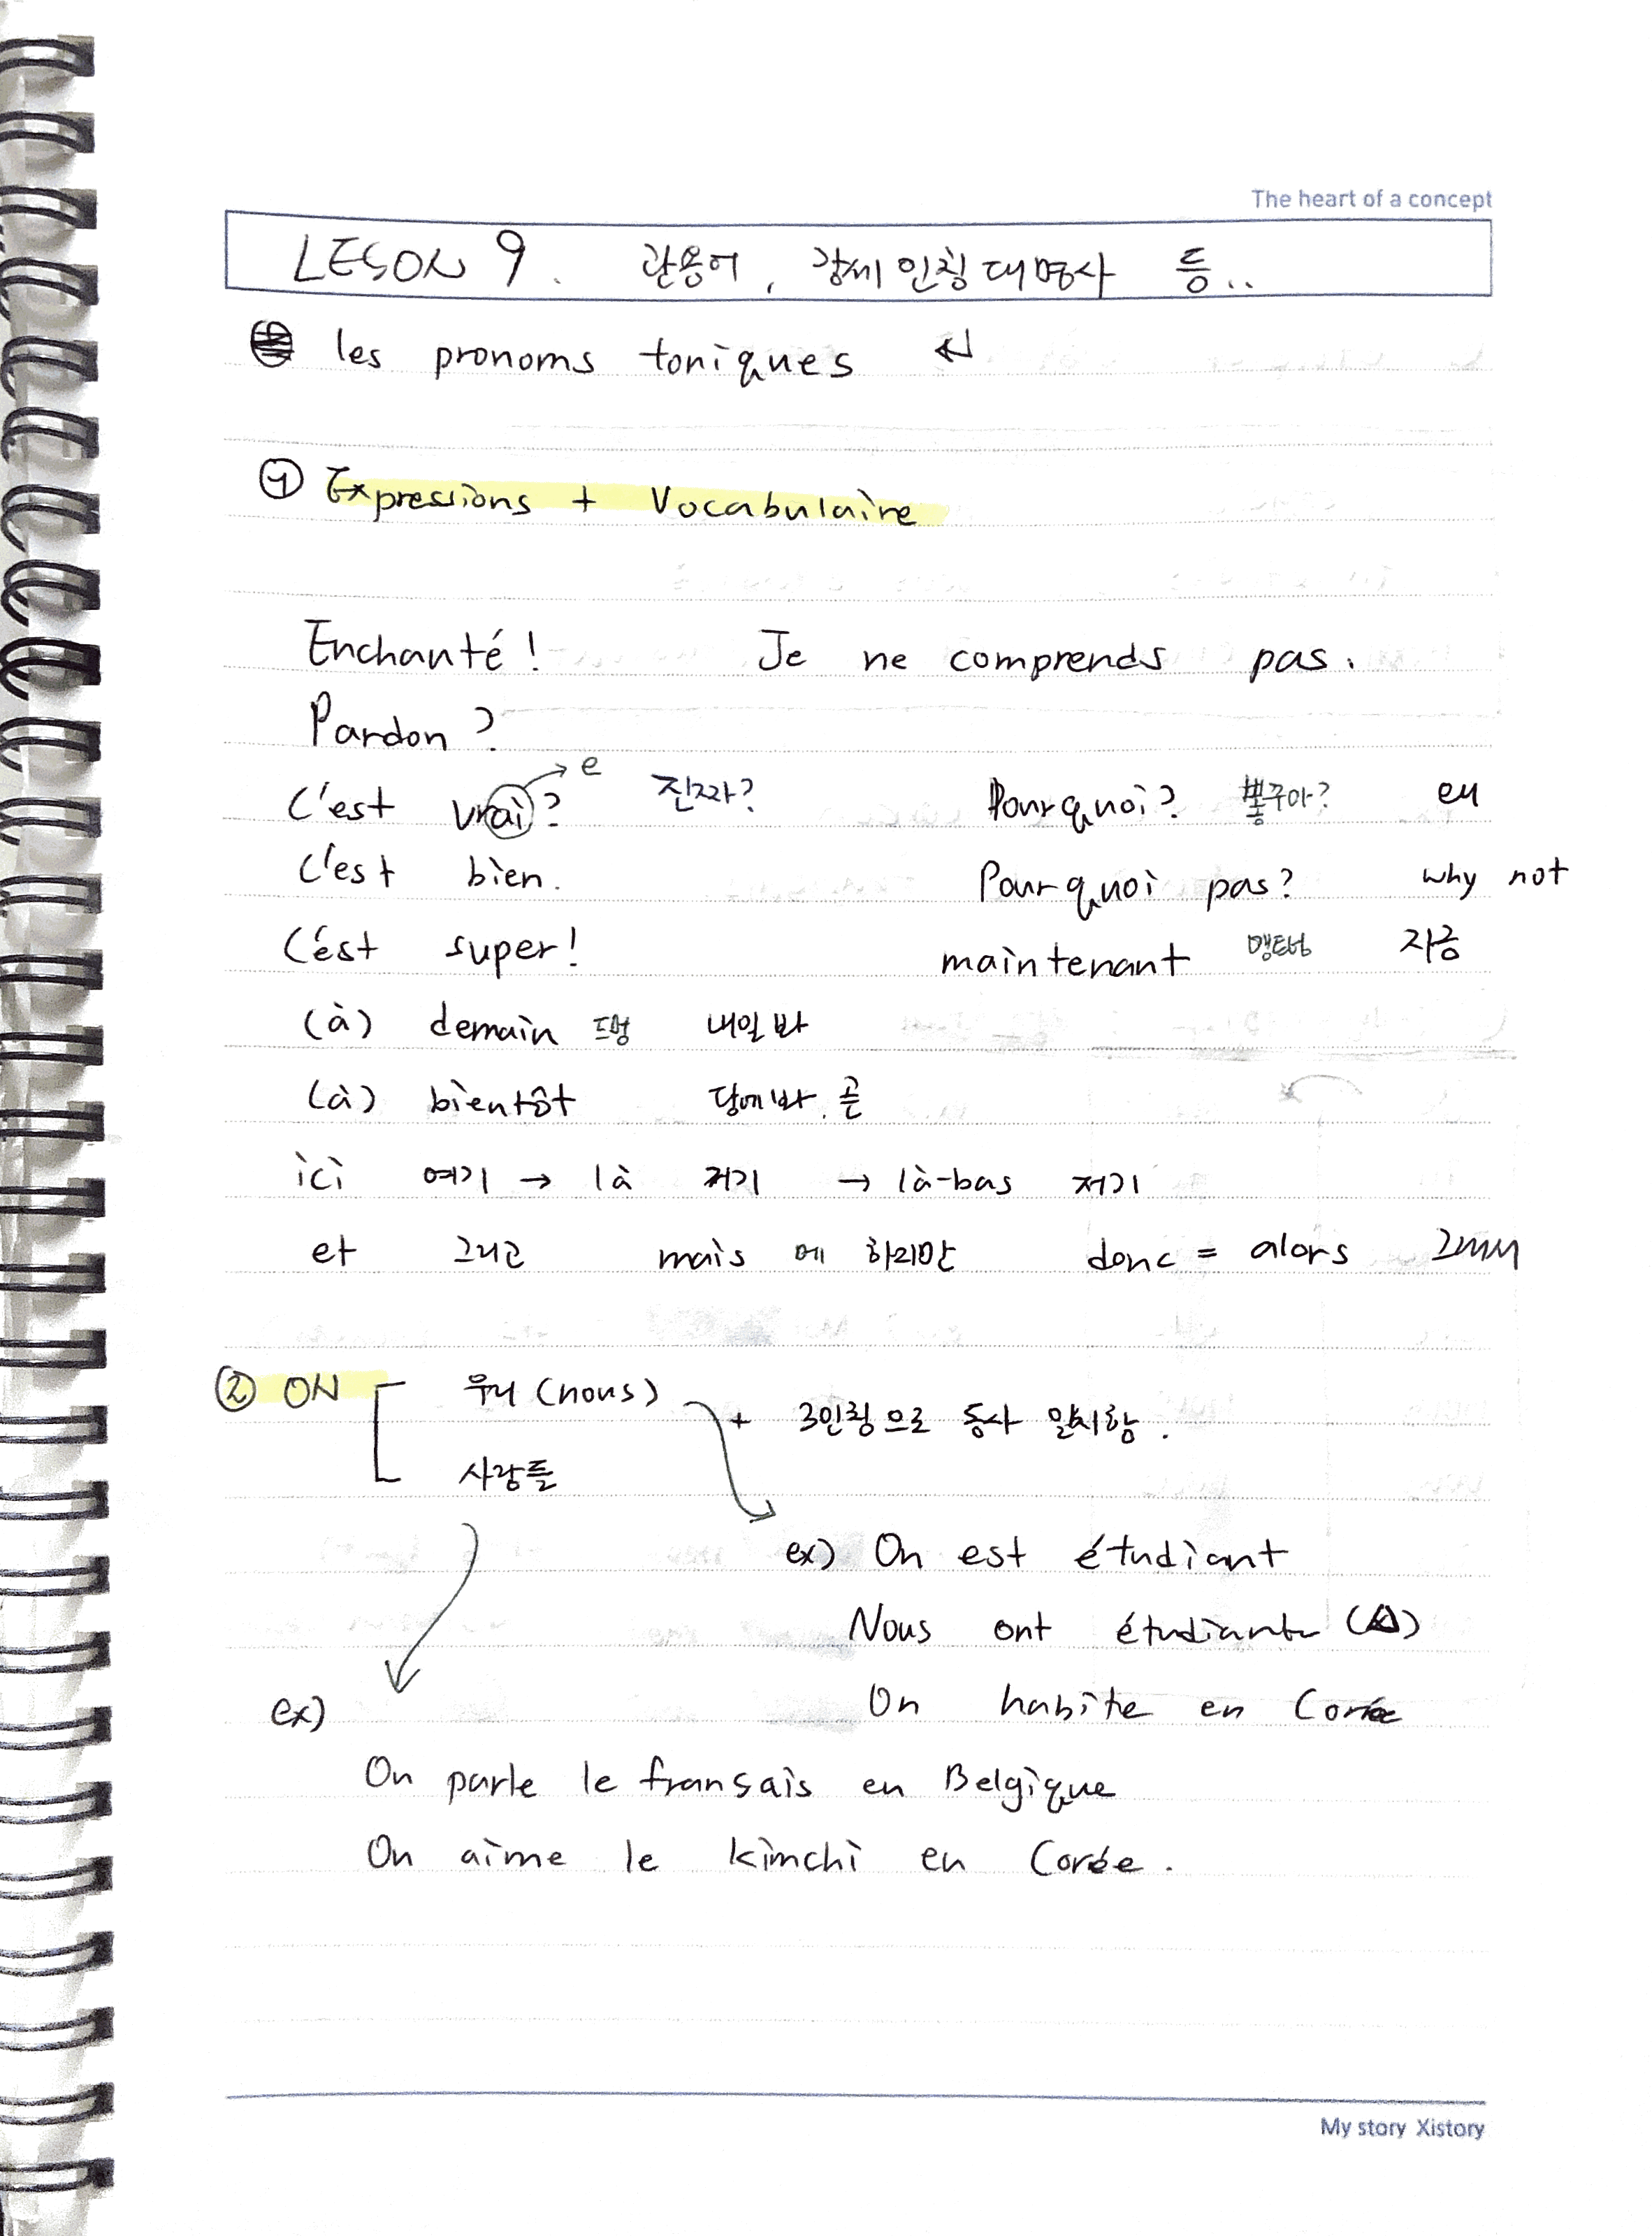 The heart of a concept
LESON 9. 관용어, 강세 인칭대명사 등..
les pronoms toniques
① Expressions + Vocabulaire
Enchanté! Je ne comprends pas.
Pardon?
C'est vrai? → e 진짜? Pourquoi? 뽕구아? eu
C'est bien. Pourquoi pas? why not
C'est super! maintenant 지금
(à) demain 드멍 내일 봐
(à) bientôt 담에 봐. 곧
ici 여기 → là 거기 → là-bas 저기
et 그리고 mais 메 하지만 donc = alors
② ON 우리 (nous) + 3인칭으로 동사 일치함.
사람들
ex) On est étudiant
Nous ont étudiants (△)
On habite en Corée
ex)
On parle le fransais en Belgique
On aime le kimchi en Corée.
My story Xistory